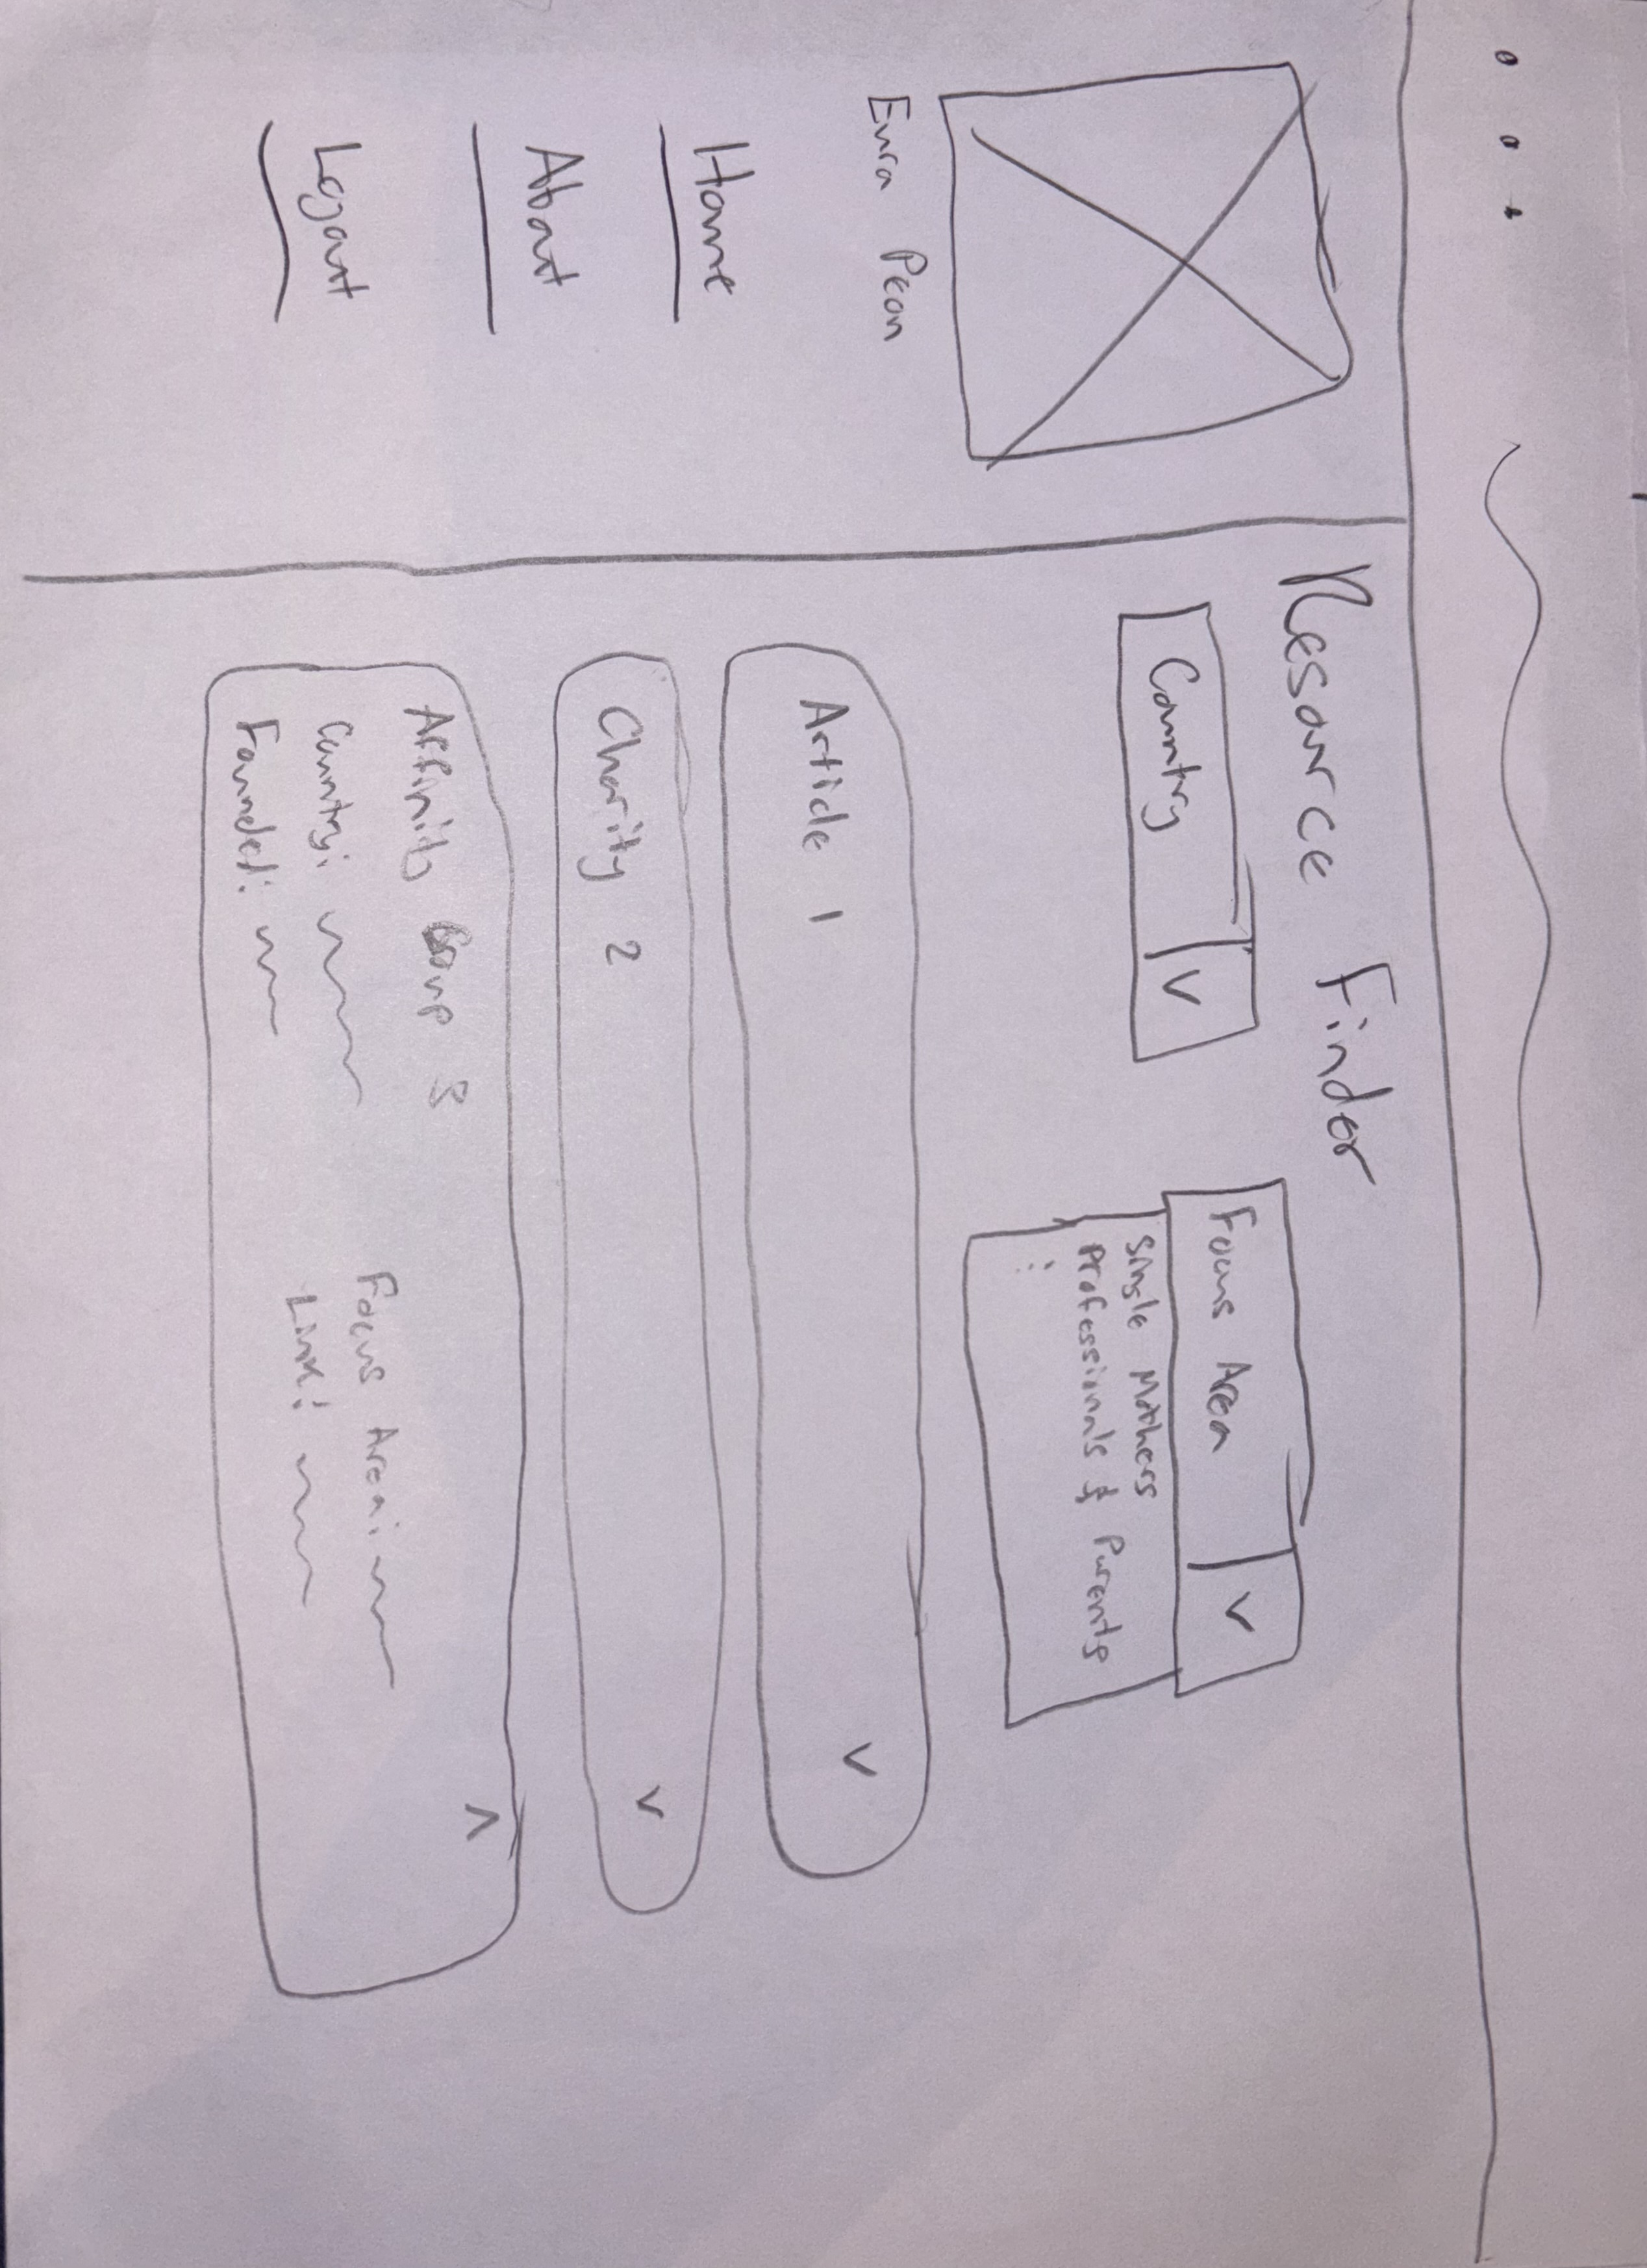 Resource Finder
Home
About
Logout
Country V
Focus Area V
Single Mothers
Professionals & Parents
Article 1 V
Charity 2 V
Affinity Group 3 ^
Country:
Focus Area:
Founded:
Link: